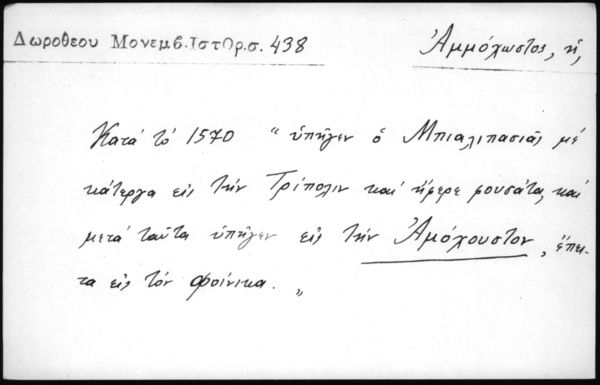 Δωροθεου Μονεμβ.Ιστορ.σ. 438
Ἀμμόχωστος, ἡ,
Κατά τό 1570 "ὑπῆγεν ὁ Μπιαλιπασιᾶς μέ
κάτεργα εἰς τήν Τρίπολιν καί ἤφερε μουσάτα, καί
μετά ταῦτα ὑπῆγεν εἰς τήν Ἀμόχουστον, ἔπει-
τα εἰς τόν Φοίνικα."